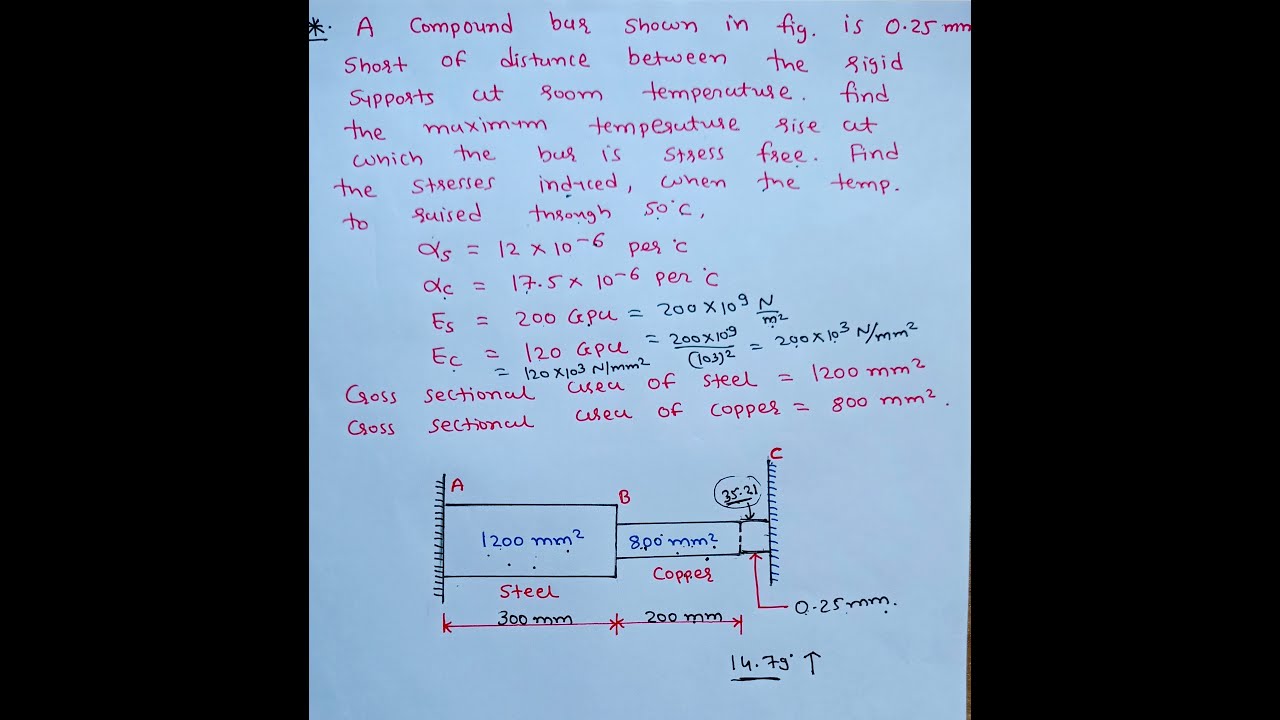 *. A Compound bar shown in fig. is 0.25 mm
Short of distance between the rigid
supports at room temperature. find
the maximum temperature rise at
which the bar is stress free. Find
the stresses induced, when the temp.
to raised through 50°C,
αs = 12 × 10⁻⁶ per °C
αc = 17.5 × 10⁻⁶ per °C
Es = 200 GPa = 200 × 10⁹ N/m²
Ec = 120 GPa = 200×10⁹/(103)² = 200×10³ N/mm²
= 120 ×10³ N/mm²
Cross sectional area of steel = 1200 mm²
Cross sectional area of copper = 800 mm².
C
A
B
35.21
1200 mm²
800 mm²
Steel
Copper
0.25 mm.
300 mm
200 mm
14.79° ↑